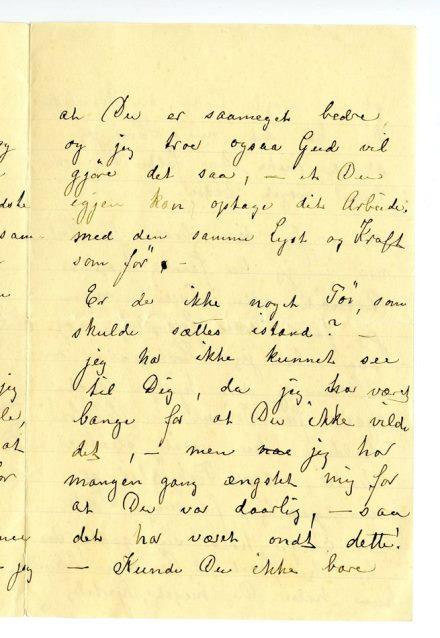 at Du er saameget bedre,
og jeg troe ogsaa Gud vil
gjöre det saa, – at Du
igjen kan optage dit Arbeide
med den samme Lyst og Kraft
som för", –
Er de ikke noget Töi, som
skulde sættes istand? –
jeg har ikke kunnet see
til Dig, da jeg har været
bange for at Du ikke vilde
det, – men jeg har
mangen gang ængstet mig for
at Du var daarlig, – saa
det har været ondt dette!
– Kunde Du ikke bare